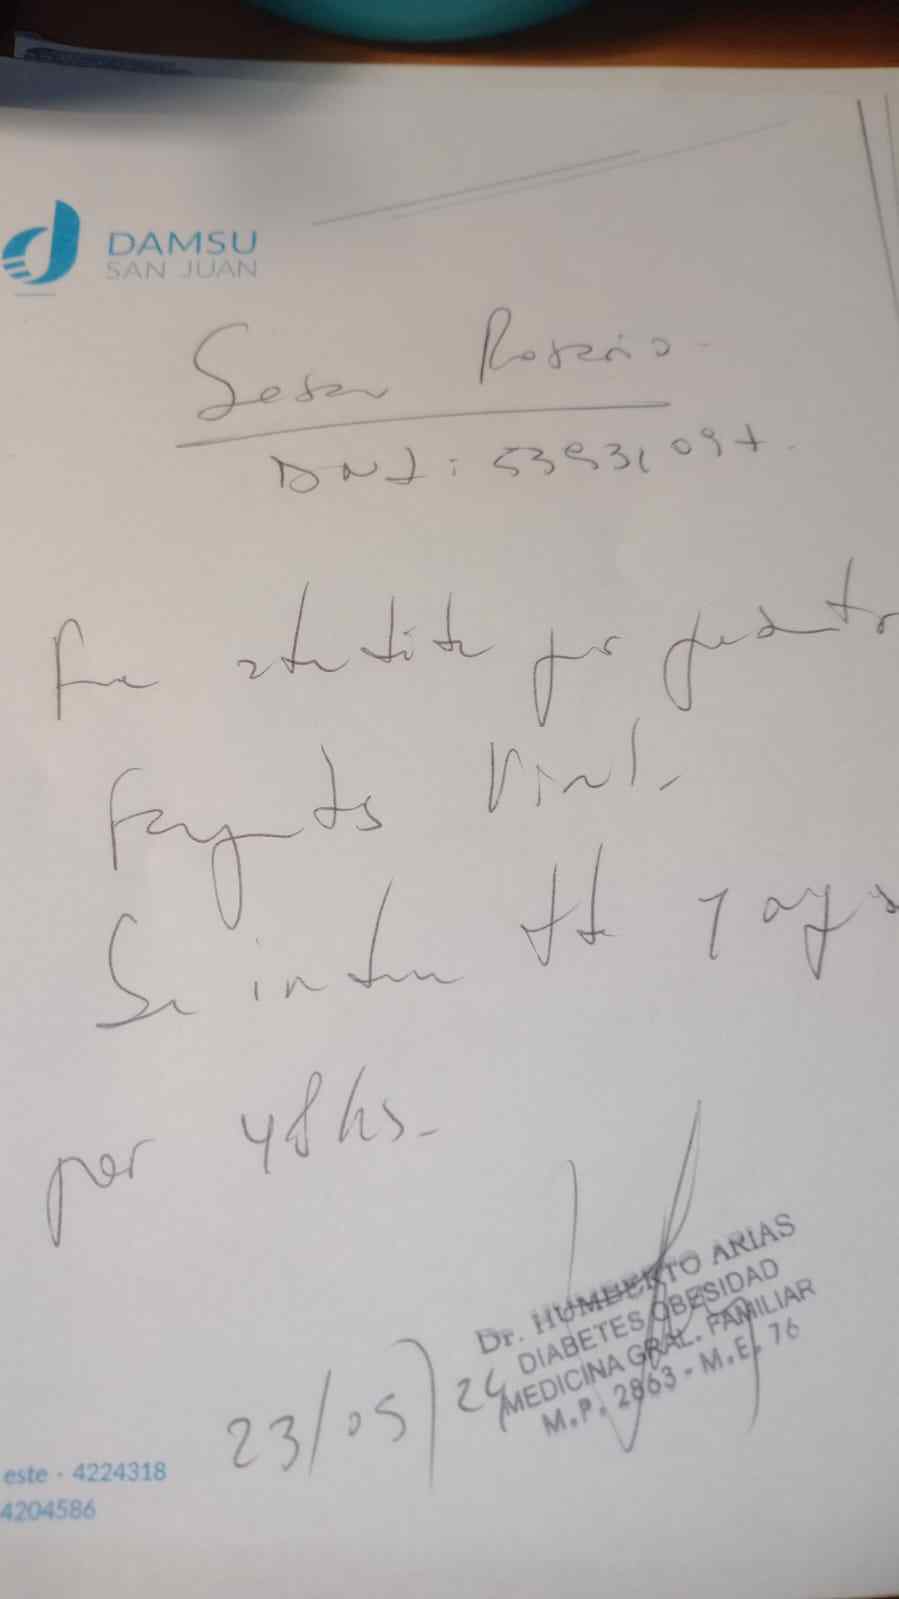 DAMSU
SAN JUAN
Rosario.
DNI:
Fue atendida por presentar
Faringitis Viral.
Se indica tto y
por 48 hs.
23/05/24
Dr. HUMBERTO ARIAS
DIABETES OBESIDAD
MEDICINA GRAL. FAMILIAR
M.P. 2863 - M.E. 76
este - 4224318
4204586